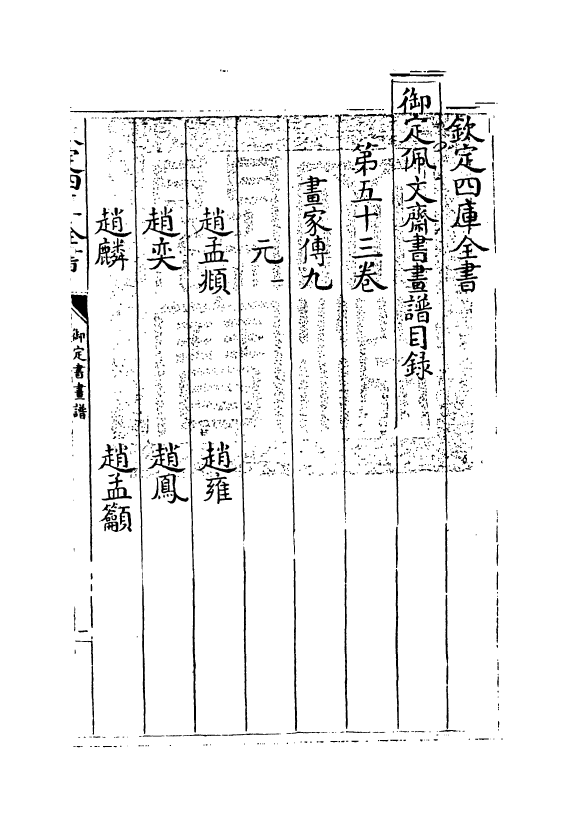 欽定四庫全書
御定佩文齋書畫譜目録
第五十三卷
畫家傳九
元一
趙孟頫 趙雍
趙奕 趙鳳
趙麟 趙孟籲
御定書畫譜